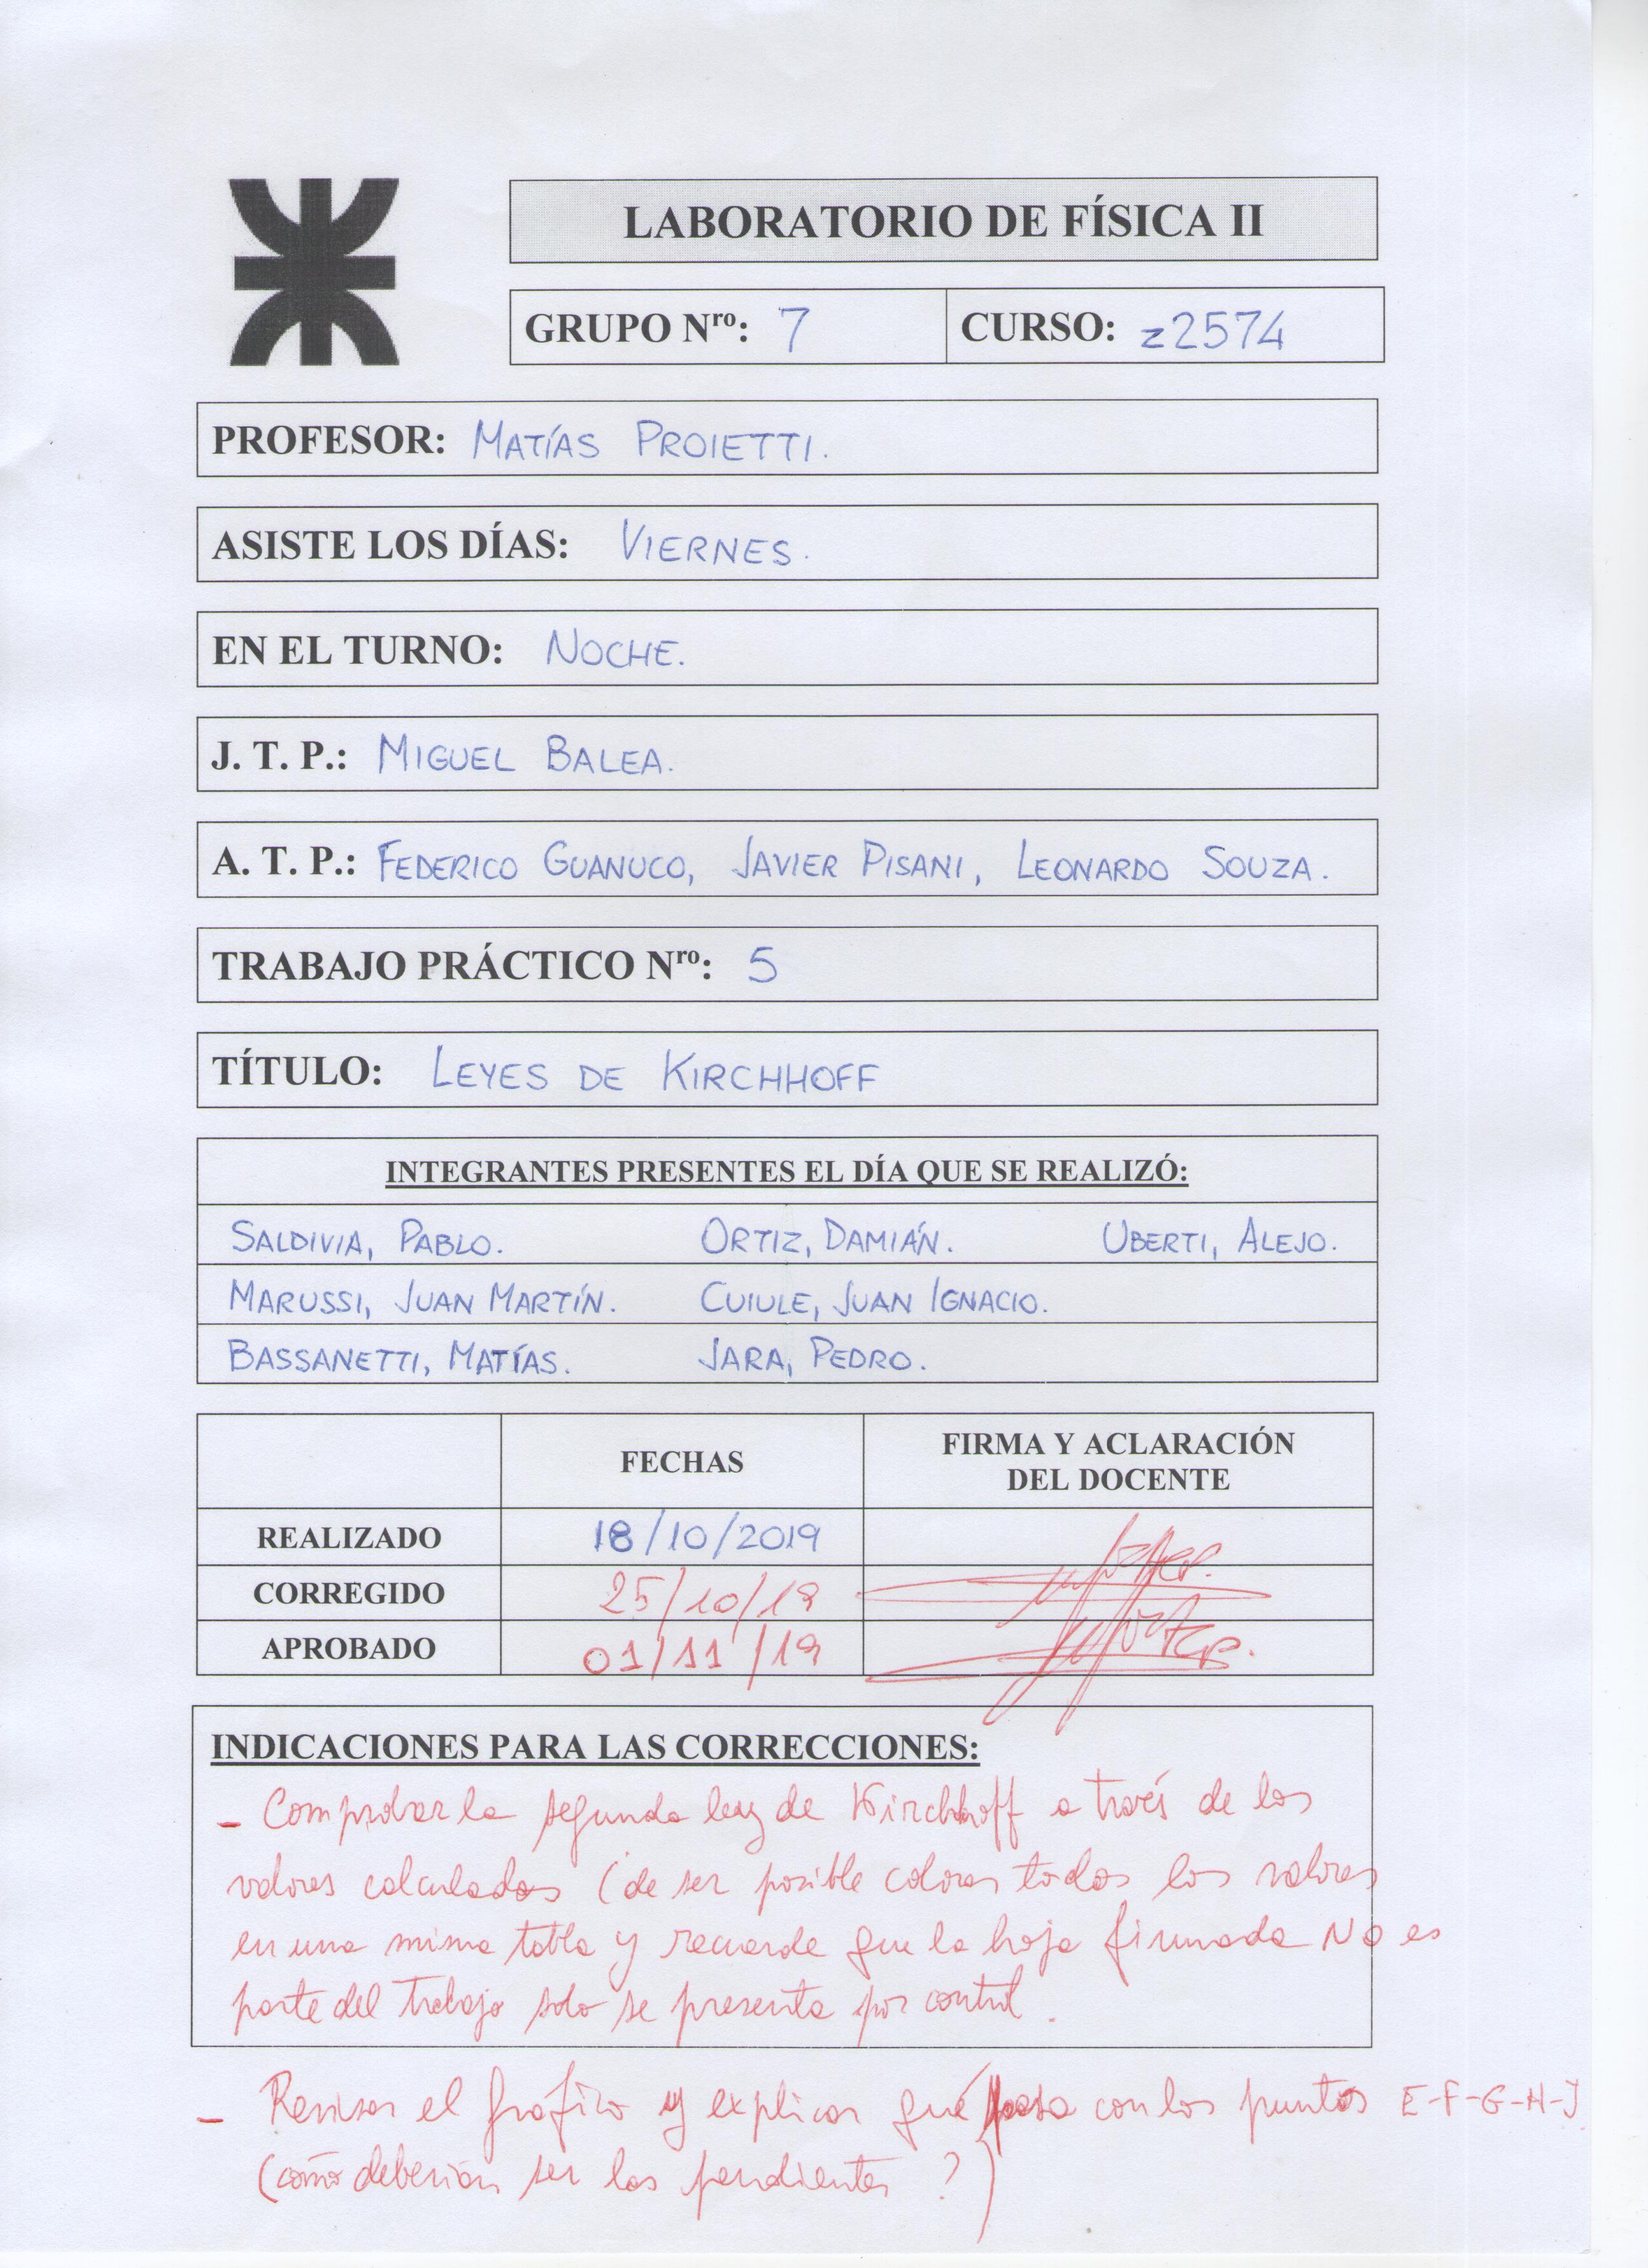 LABORATORIO DE FÍSICA II
GRUPO Nro: 7 CURSO: z2574
PROFESOR: MATÍAS PROIETTI.
ASISTE LOS DÍAS: VIERNES.
EN EL TURNO: NOCHE.
J. T. P.: MIGUEL BALEA.
A. T. P.: FEDERICO GUANUCO, JAVIER PISANI, LEONARDO SOUZA.
TRABAJO PRÁCTICO Nro: 5
TÍTULO: LEYES DE KIRCHHOFF
INTEGRANTES PRESENTES EL DÍA QUE SE REALIZÓ:
SALDIVIA, PABLO. ORTIZ, DAMIÁN. UBERTI, ALEJO.
MARUSSI, JUAN MARTÍN. CUIULE, JUAN IGNACIO.
BASSANETTI, MATÍAS. JARA, PEDRO.
FECHAS FIRMA Y ACLARACIÓN
DEL DOCENTE
REALIZADO 18/10/2019
CORREGIDO 25/10/19
APROBADO 01/11/19
INDICACIONES PARA LAS CORRECCIONES:
- Comprobar la segunda ley de Kirchhoff a través de los
valores calculados (de ser posible colocar todos los valores
en una misma tabla y recuerde que la hoja firmada NO es
parte del trabajo solo se presenta por control.
- Revisar el gráfico y explicar qué pasa con los puntos E-F-G-H-J
(cómo deberían ser las pendientes ?)